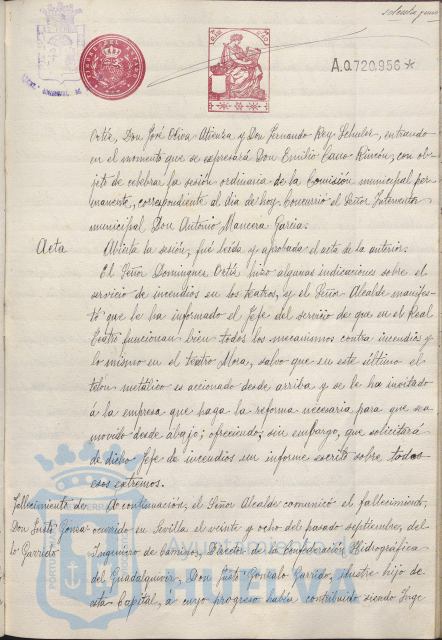 A.0.720,956*
Ortiz, Don José Oliva Atienza y Don Fernando Rey Schuler, entrando
en el momento que se expresará Don Emilio Cano Rincón, con ob-
jeto de celebrar la sesión ordinaria de la Comisión municipal per-
manente, correspondiente al día de hoy. Concurrió el Señor Interventor
municipal Don Antonio Mancera García.
Acta
Abierta la sesión, fué leída y aprobada el acta de la anterior.
El Señor Domínguez Ortiz hizo algunas indicaciones sobre el
servicio de incendios en los teatros, y el Señor Alcalde manifes-
tó que le ha informado el Jefe del servicio de que en el Real
Teatro funcionan bien todos los mecanismos contra incendios y
lo mismo en el teatro Mora, salvo que en este último el
telón metálico es accionado desde arriba y se le ha invitado
á la empresa que haga la reforma necesaria para que sea
movido desde abajo; ofreciendo, sin embargo, que solicitará
de dicho Jefe de incendios un informe escrito sobre todos
esos extremos.
Fallecimiento de
Don Justo Gonza-
lo Garrido
A continuación, el Señor Alcalde comunicó el fallecimiento,
ocurrido en Sevilla el veinte y ocho del pasado septiembre, del
Ingeniero de Caminos, Director de la Confederación Hidrográfica
del Guadalquivir, Don Justo Gonzalo Garrido, ilustre hijo de
esta Capital, a cuyo progreso había contribuido siendo Inge
Ayuntamiento de
HUELVA